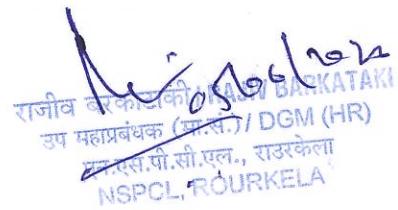 05/06/2022
राजीव बरकाटाकी / RAJIV BARKATAKI
उप महाप्रबंधक (मा.सं.) / DGM (HR)
एन.एस.पी.सी.एल., राउरकेला
NSPCL, ROURKELA